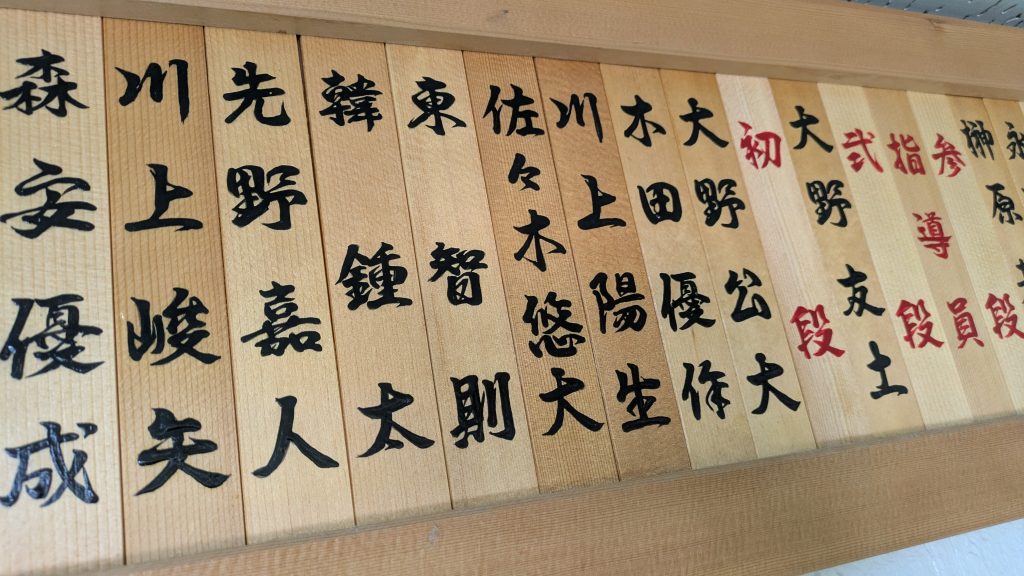 榊原
参段
指導員
弐段
大野友土
初段
大野公大
木田優作
川上陽生
佐々木悠大
東智則
韓鍾太
先野嘉人
川上峻矢
森安優成